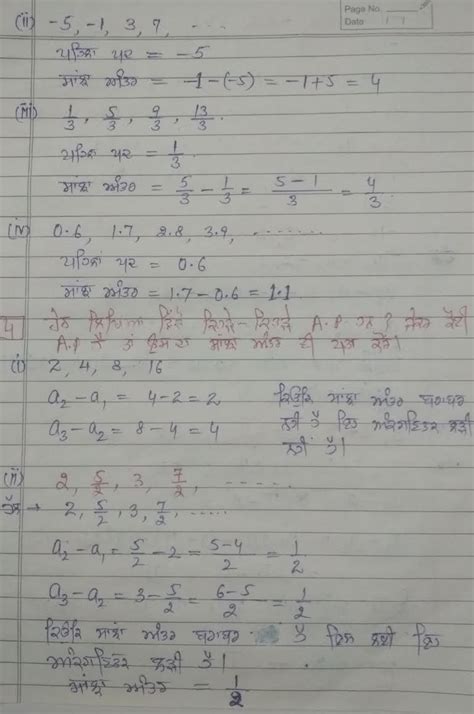 Page No.
Date
(ii) -5, -1, 3, 7, ....
ਪਹਿਲਾ ਪਦ = -5
ਸਾਂਝਾ ਅੰਤਰ = -1-(-5) = -1+5 = 4
(iii) 1/3, 5/3, 9/3, 13/3.
ਪਹਿਲਾ ਪਦ = 1/3
ਸਾਂਝਾ ਅੰਤਰ = 5/3 - 1/3 = 5-1/3 = 4/3.
(iv) 0.6, 1.7, 2.8, 3.9, ........
ਪਹਿਲਾਂ ਪਦ = 0.6
ਸਾਂਝਾ ਅੰਤਰ = 1.7-0.6 = 1.1
4 ਹੇਠ ਲਿਖਿਆਂ ਵਿੱਚੋਂ ਕਿਹੜੇ-ਕਿਹੜੇ A.P ਹਨ? ਜੇਕਰ ਕੋਈ
A.P ਹੈ ਤਾਂ ਉਸਦਾ ਸਾਂਝਾ ਅੰਤਰ ਵੀ ਪਤਾ ਕਰੋ।
(i) 2, 4, 8, 16
a₂-a₁ = 4-2 = 2
a₃-a₂ = 8-4 = 4
ਕਿਉਂਕਿ ਸਾਂਝਾ ਅੰਤਰ ਬਰਾਬਰ
ਨਹੀਂ ਹੈ ਇਸ ਅੰਕਗਣਿਤਕ ਲੜੀ
ਨਹੀਂ ਹੈ।
(ii) 2, 5/2, 3, 7/2, ......
ਹੱਲ → 2, 5/2, 3, 7/2, .....
a₂-a₁ = 5/2 - 2 = 5-4/2 = 1/2
a₃-a₂ = 3 - 5/2 = 6-5/2 = 1/2
ਕਿਉਂਕਿ ਸਾਂਝਾ ਅੰਤਰ ਬਰਾਬਰ ਹੈ ਇਸ ਲਈ ਇਹ
ਅੰਕਗਣਿਤਕ ਲੜੀ ਹੈ।
ਸਾਂਝਾ ਅੰਤਰ = 1/2